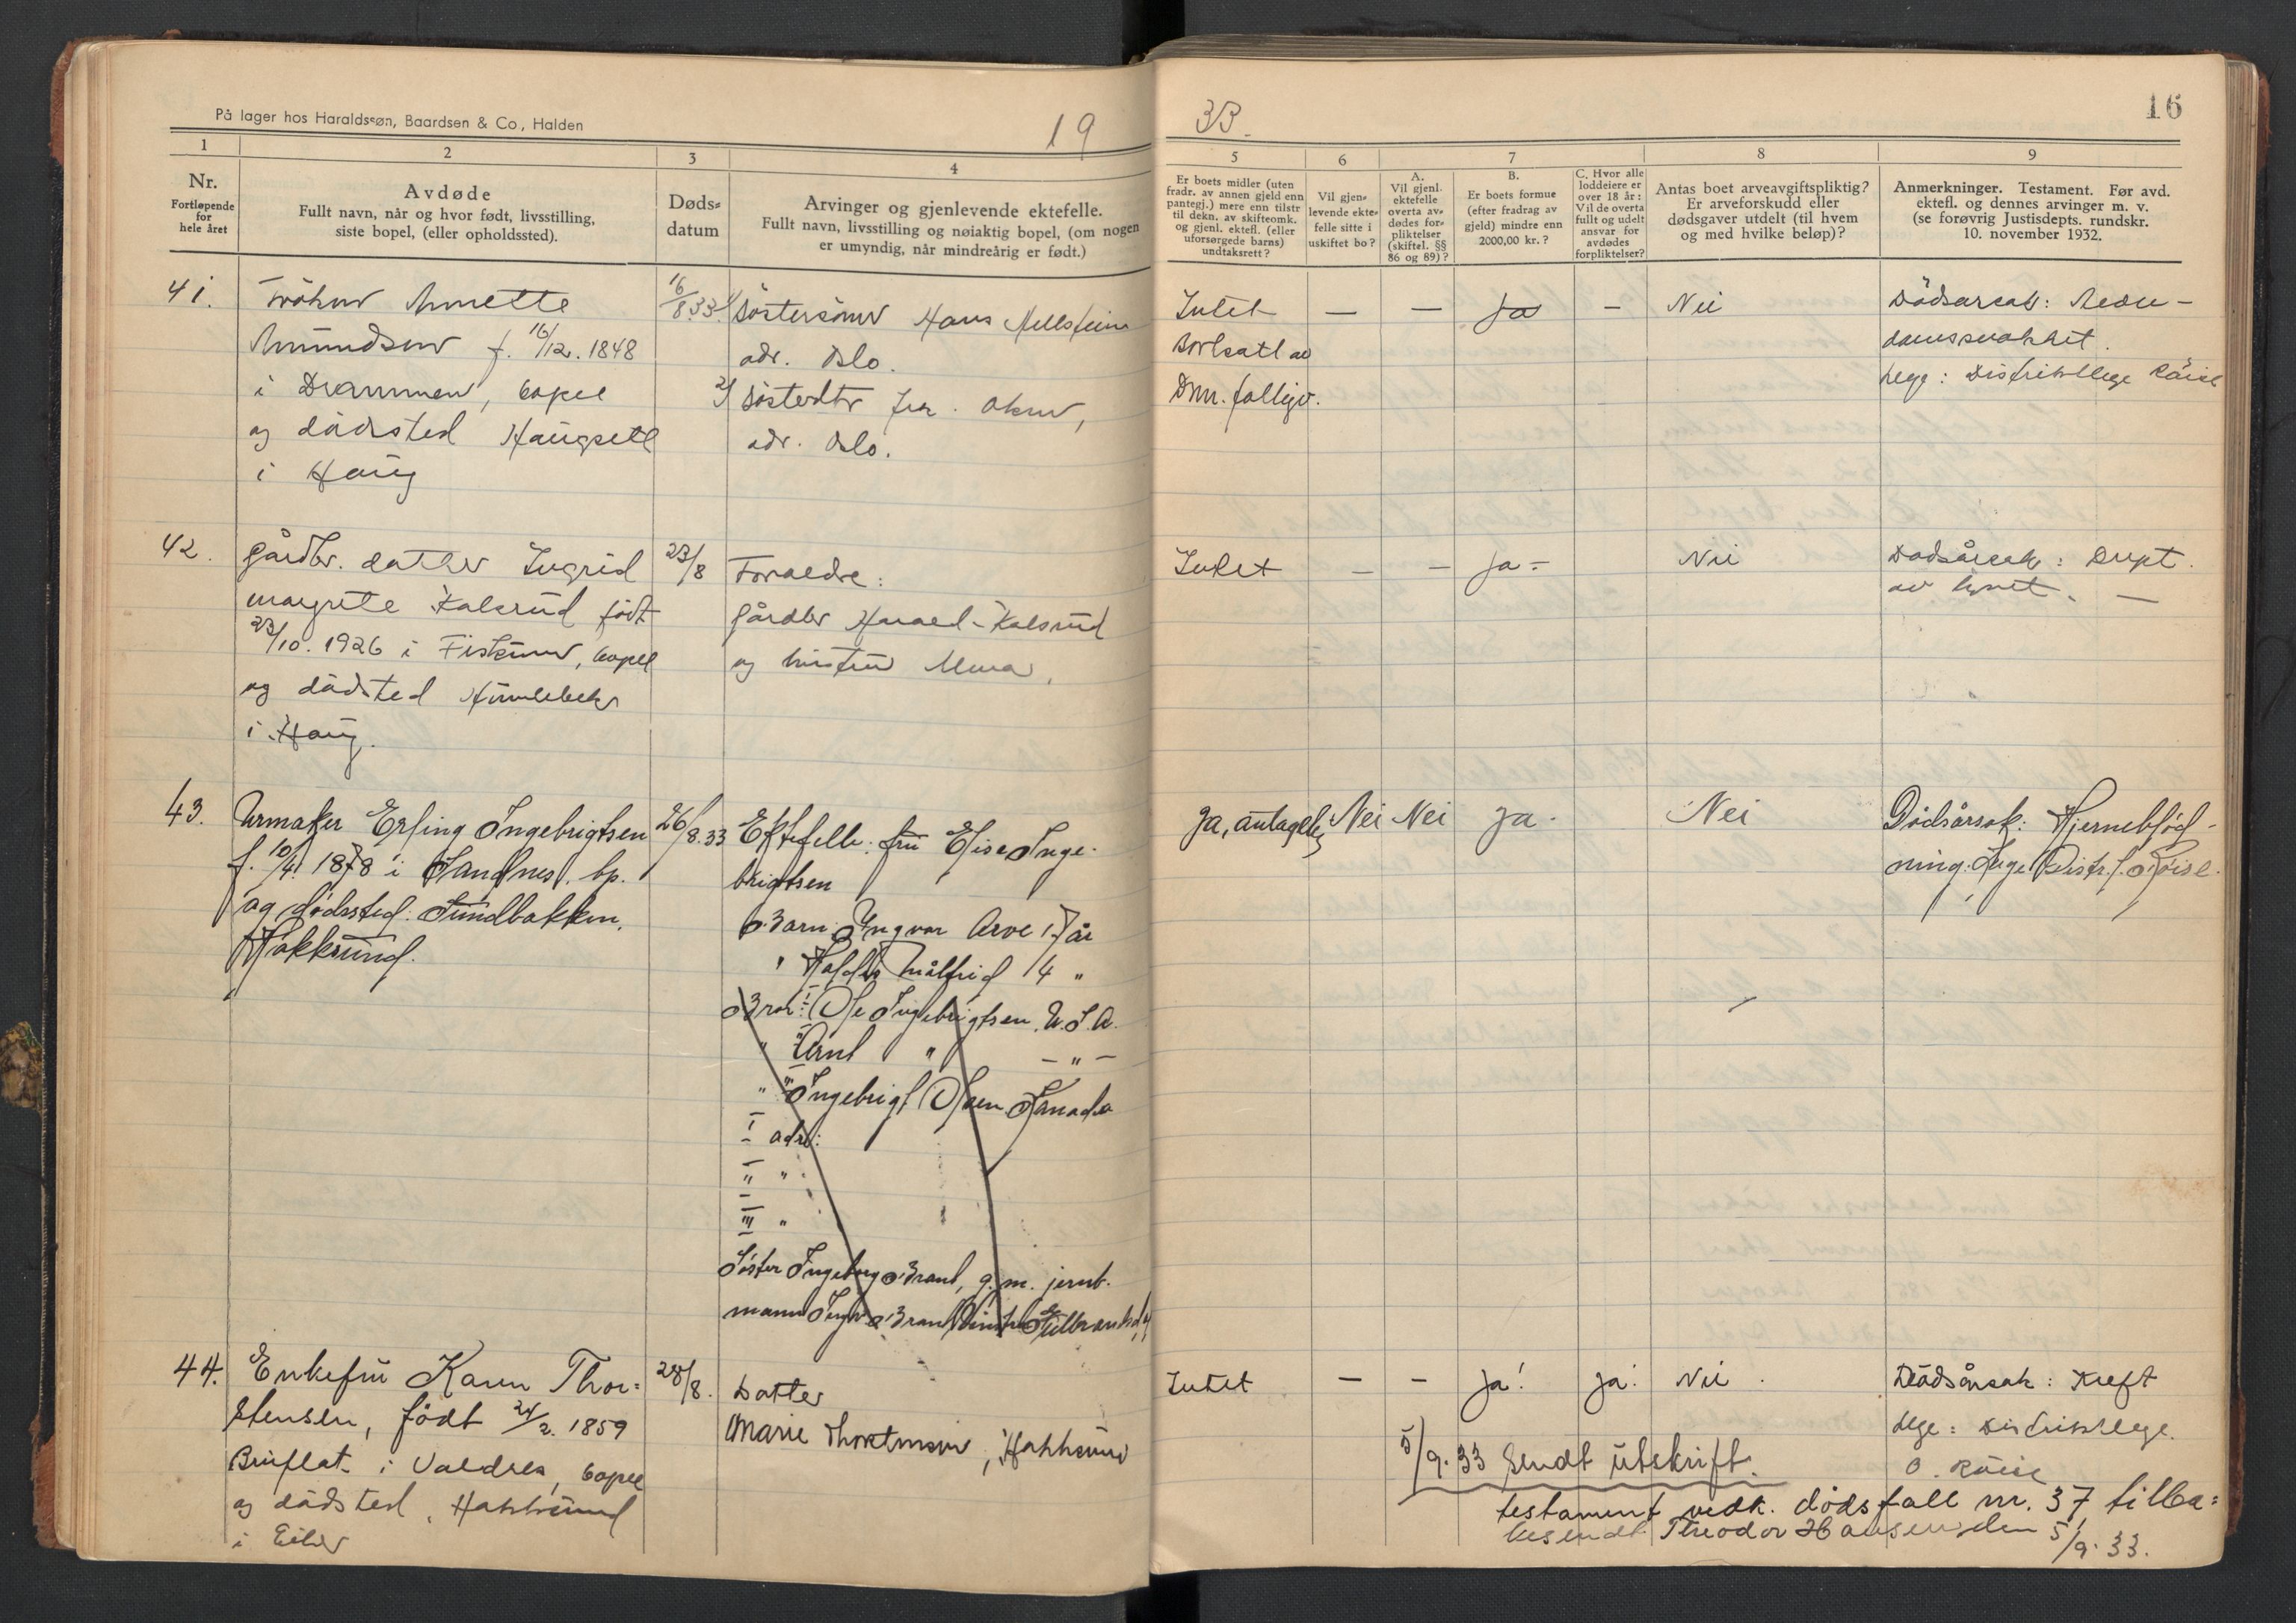 På lager hos Haraldssøn, Baardsen & Co., Halden
19
33.
16
1
2
3
4
5
6
7
8
9
Nr.
Fortløpende
for
hele året
Avdøde
Fullt navn, når og hvor født, livsstilling,
siste bopel, (eller opholdssted).
Døds-
datum
Arvinger og gjenlevende ektefelle.
Fullt navn, livsstilling og nøiaktig bopel, (om nogen
er umyndig, når mindreårig er født.)
Er boets midler (uten
fradr. av annen gjeld enn
pantegj.) mere enn tilstr
til dekn. av skifteomk.
og gjenl. ektefl. (eller
uforsørgede barns)
undtaksrett?
Vil gjen-
levende ekte-
felle sitte i
uskiftet bo?
A.
Vil gjenl.
ektefelle
overta av-
dødes for-
pliktelser
(skiftel. §§
86 og 89)?
B.
Er boets formue
(efter fradrag av
gjeld) mindre enn
2000,00 kr.?
C. Hvor alle
loddeiere er
over 18 år:
Vil de overta
fullt og udelt
ansvar for
avdødes
forpliktelser?
Antas boet arveavgiftspliktig?
Er arveforskudd eller
dødsgaver utdelt (til hvem
og med hvilke beløp)?
Anmerkninger. Testament. Før avd.
ektefl. og dennes arvinger m. v.
(se forøvrig Justisdepts. rundskr.
10. november 1932.
41.
Frøken Annette
Amundsen f. 16/12. 1848
i Drammen, bopel
og dødsted Haugsett
i Haug
16/8 33
1/ Søstersønn Hans
adr. Oslo.
2/ Søsterdtr fra
adr. Oslo.
Intet
bortsatt av
Drm. fattigv.
— — Ja —
Nei
Dødsårsak: Alder-
domssvakhet.
Lege: Distriktslege Röise
42.
Gårdbr. datter Ingrid
Margrete Kalsrud født
23/10. 1926 i Fiskum, bopel
og dødsted Himlebekk
i Haug.
23/8
Foreldre:
Gårdbr Harald Kalsrud
og hustru
Intet
— — Ja —
Nei
Dødsårsak: Drept
av lynet. —
43.
Urmaker Erling Ingebrigtsen
f. 10/4 1878 i Sandnes. bp.
og dødssted: Sundbakken,
Hokksund.
26/8.33
Ektefelle: fru Elise Inge-
brigtsen
Barn: Yngvar Arve 17 år
" Haldis Målfrid 14 "
Bror: I Ole Ingebrigtsen, U.S.A.
" II Arnt " — " —
" III Ingebrigt Olsen Kanada
I adr:
II "
III "
Søster Ingeborg Brand, g. m. jernb.
mann Brand
Ja, antagelig
Nei Nei Ja.
Nei
Dødsårsak: Hjerneblød-
ning. Lege Distr.l. Röise.
44.
Enkefru Karen Thor-
stensen, født 24/2. 1859
Bruflat i Valdres, bopel
og dødsted, Hokksund
i Eiker
28/8.
Datter
Marie Thorstensen, Hokksund
Intet
— — Ja! Ja! Nei.
Dødsårsak: Kreft
Lege: Distriktslege.
O. Röise
5/9.33 Sendt utskrift.
testament vedk. dødsfall nr. 37, tilba=
kesendt Theodor Hansen den 5/9.33.